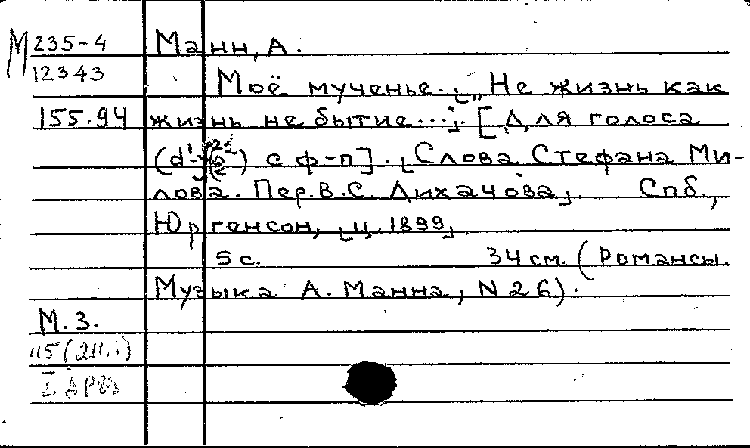 М 235-4 Манн, А.
12343 Моё мученье. [„Не жизнь как
155.94 жизнь не бытие...“]. [Для голоса
с ф-п]. [Слова Стефана Ми-
лова. Пер. В. С. Лихачова]. Спб.,
Юргенсон, [ц. 1899]
5 с. 34 см. (Романсы.
Музыка А. Манна, N 26).
М. З.